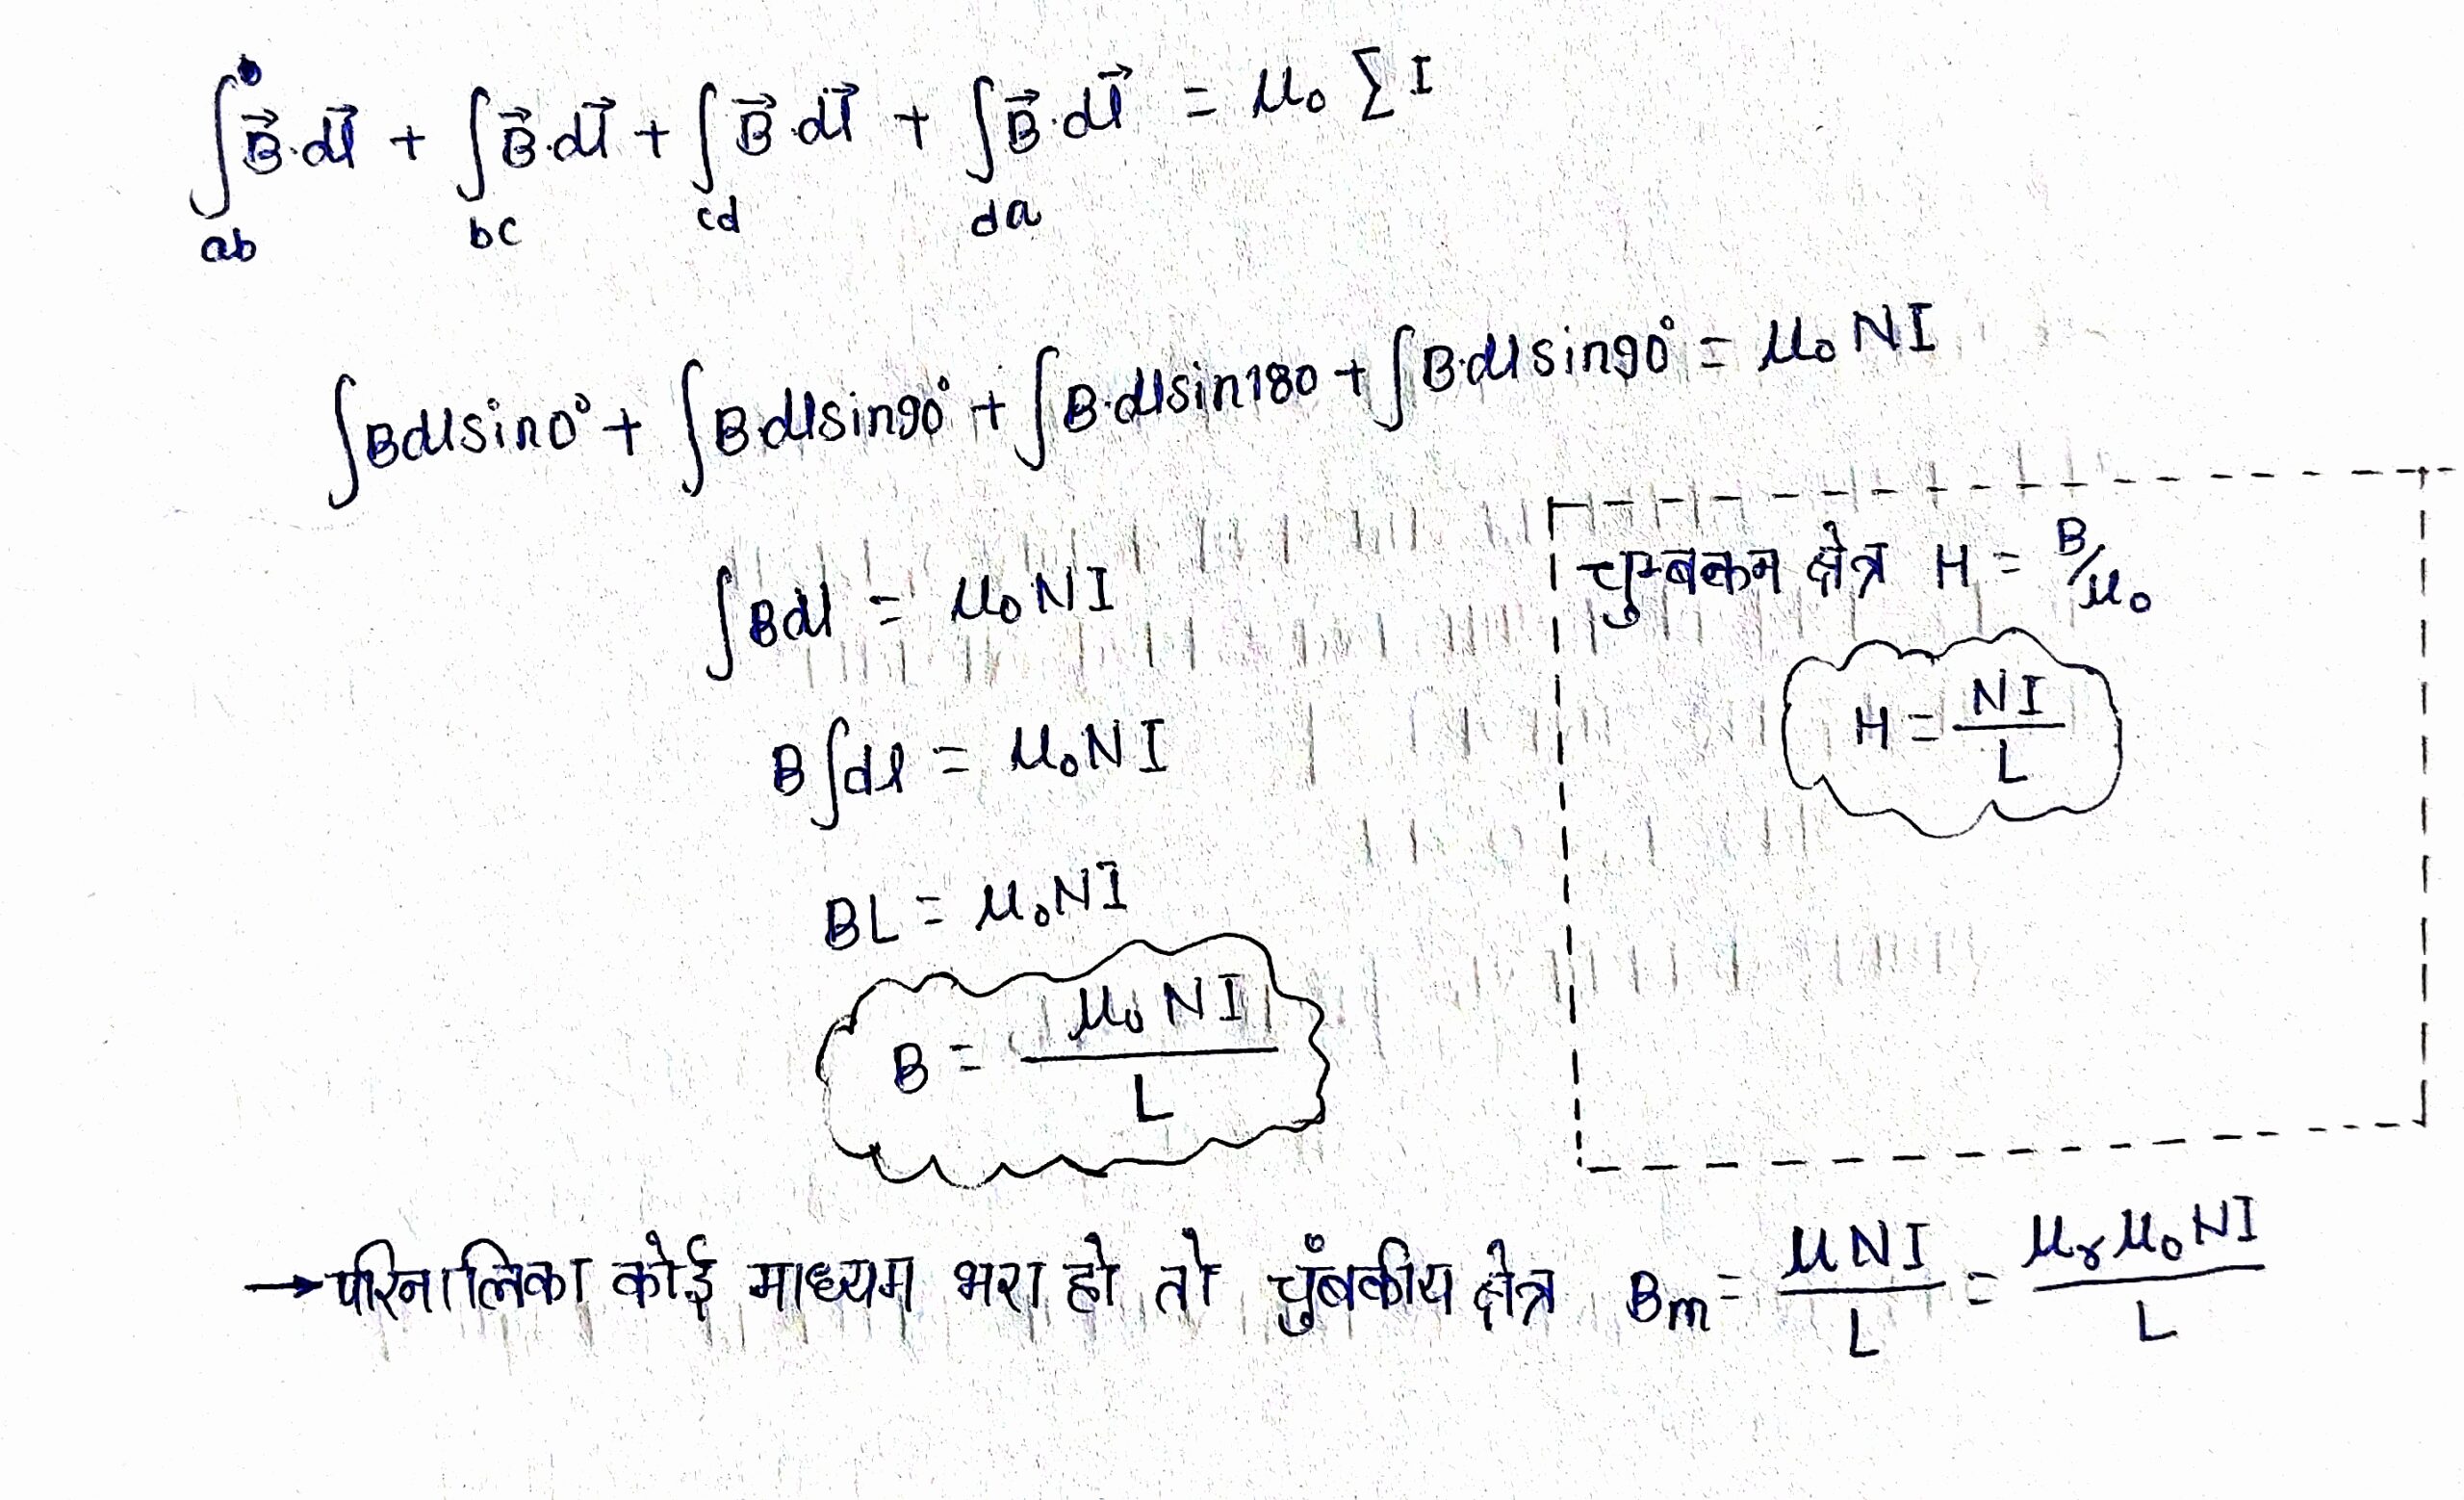 ∫B⃗·dl⃗ + ∫B⃗·dl⃗ + ∫B⃗·dl⃗ + ∫B⃗·dl⃗ = μ₀ ∑I
ab bc cd da
∫Bdlsin0° + ∫B·dlsin90° + ∫B·dlsin180 + ∫B·dlsin90° = μ₀NI
∫Bdl = μ₀NI
B∫dl = μ₀NI
BL = μ₀NI
B = μ₀NI/L
चुम्बकन क्षेत्र H = B/μ₀
H = NI/L
→परिनालिका कोई माध्यम भरा हो तो चुंबकीय क्षेत्र Bm = μNI/L = μrμ₀NI/L